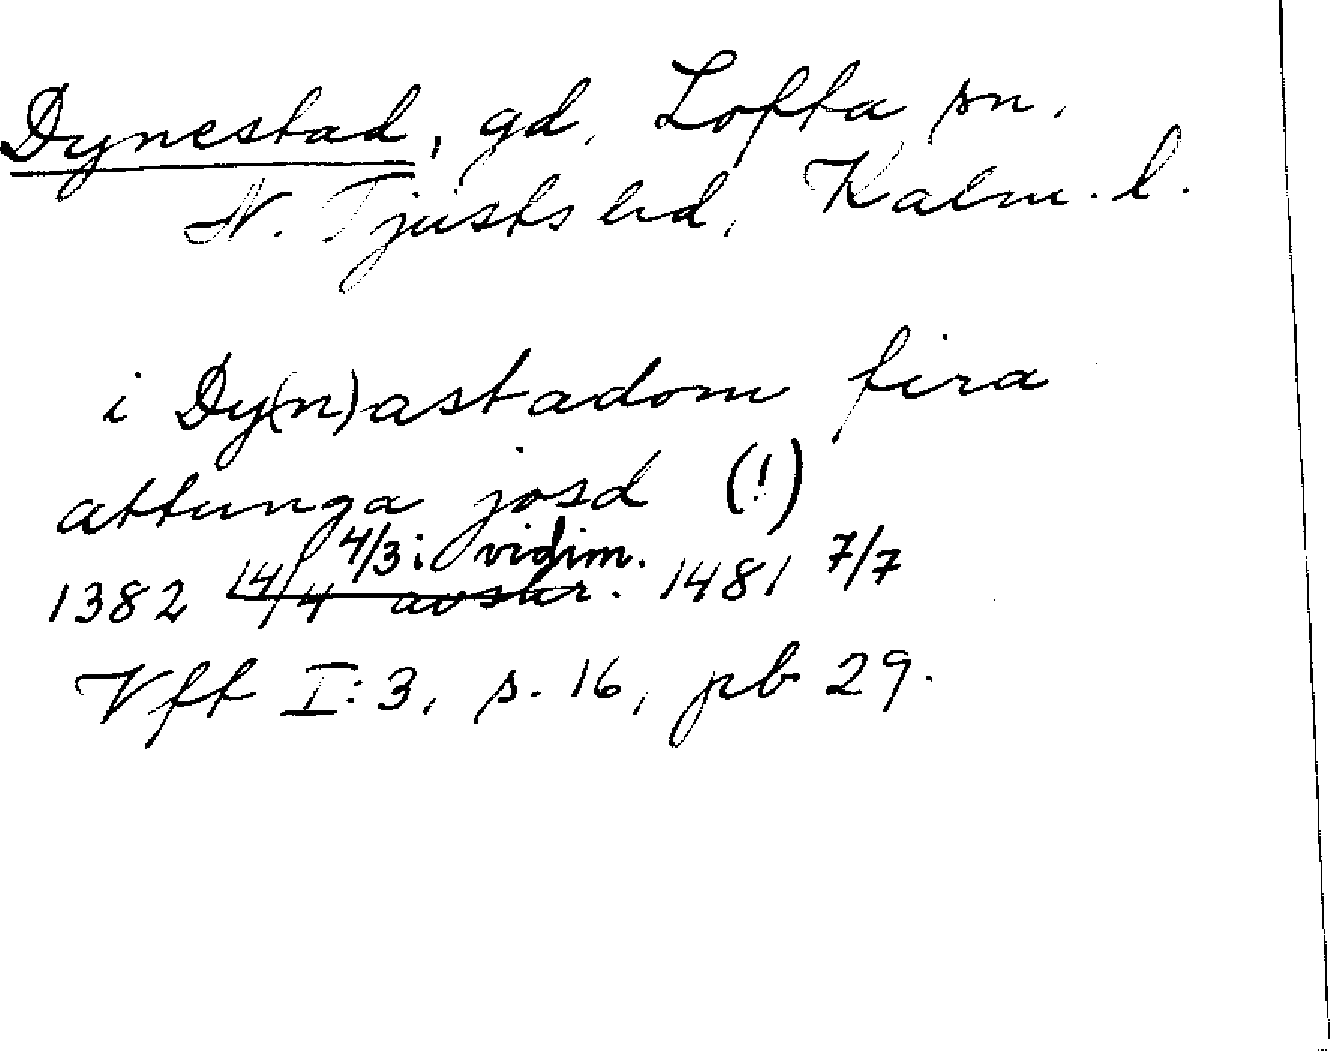 Dynestad, gd, Lofta sn,
N. Tjusts hd, Kalm. l.
i Dy(n)astadom fira
attunga josd (!)
4/3 i vidim.
1382 14/4 avskr. 1481 7/7
Vft I:3, s. 16, pb 29.